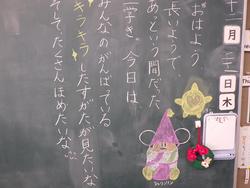 十二月
二日
木
おはよう
長いようで、
あっという間だった
二学き。今日は、
みんなのがんばっている
キラキラしたすがたが見たいな。
そして、たくさんほめたいな。